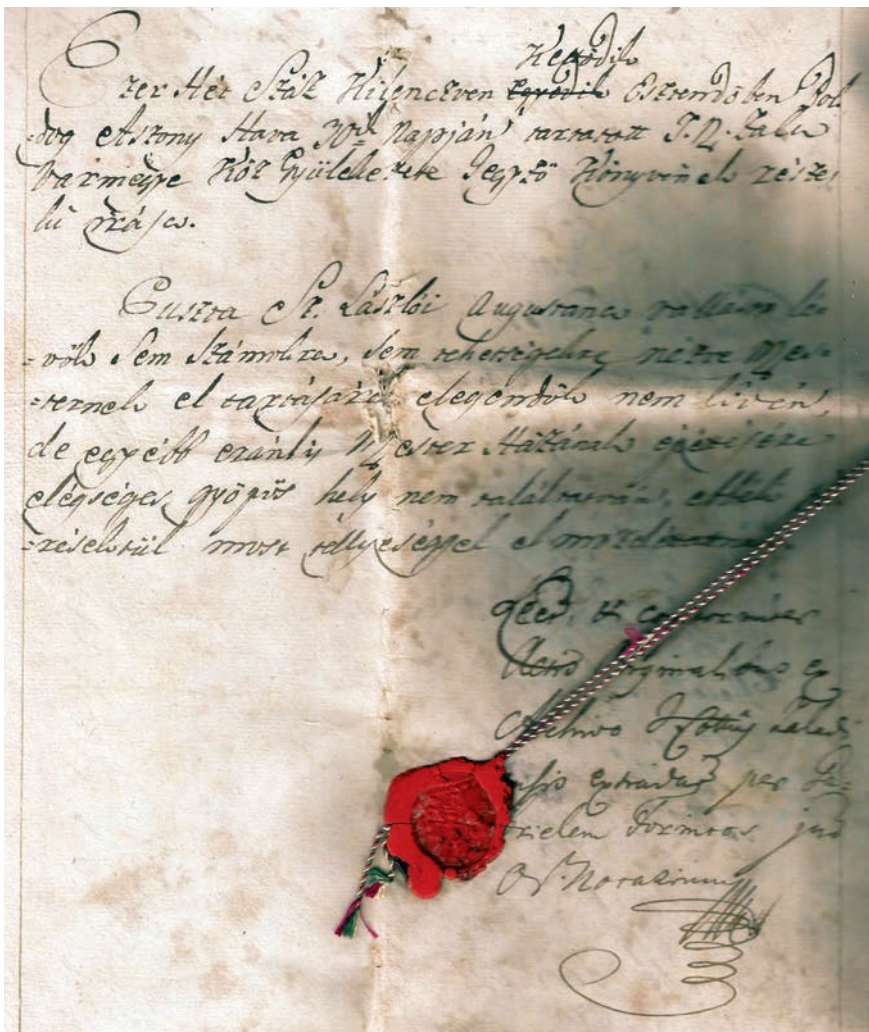 Kettődik
Ezer Hét Száz Kilenczven Egyedik Esztendőben Bol=
=dog Aszony Hava 30ik Napján tartatott T. N. Zala
Vármegye Köz Gyülekezete Jegyző Könyvének részte
lü irása.
Puszta Sz. Lászlói Augustana valláson lé
=vök sem számokra, sem tehetségekre nézve Mes=
=ternek el tartására elegendök nem lévén,
de egyébb eránt is Mester Házának épétésére
elégséges gyöpös hely nem találtatván, ettöl
=résektül most tellyeséggel el mozdéttatnak.
Lecta, et conformiter
Actis Originalibus ex
Archivo I. Cottus Zaladi
ensis extradata per Ga=
brielem Forintos jur
Or. Notarium